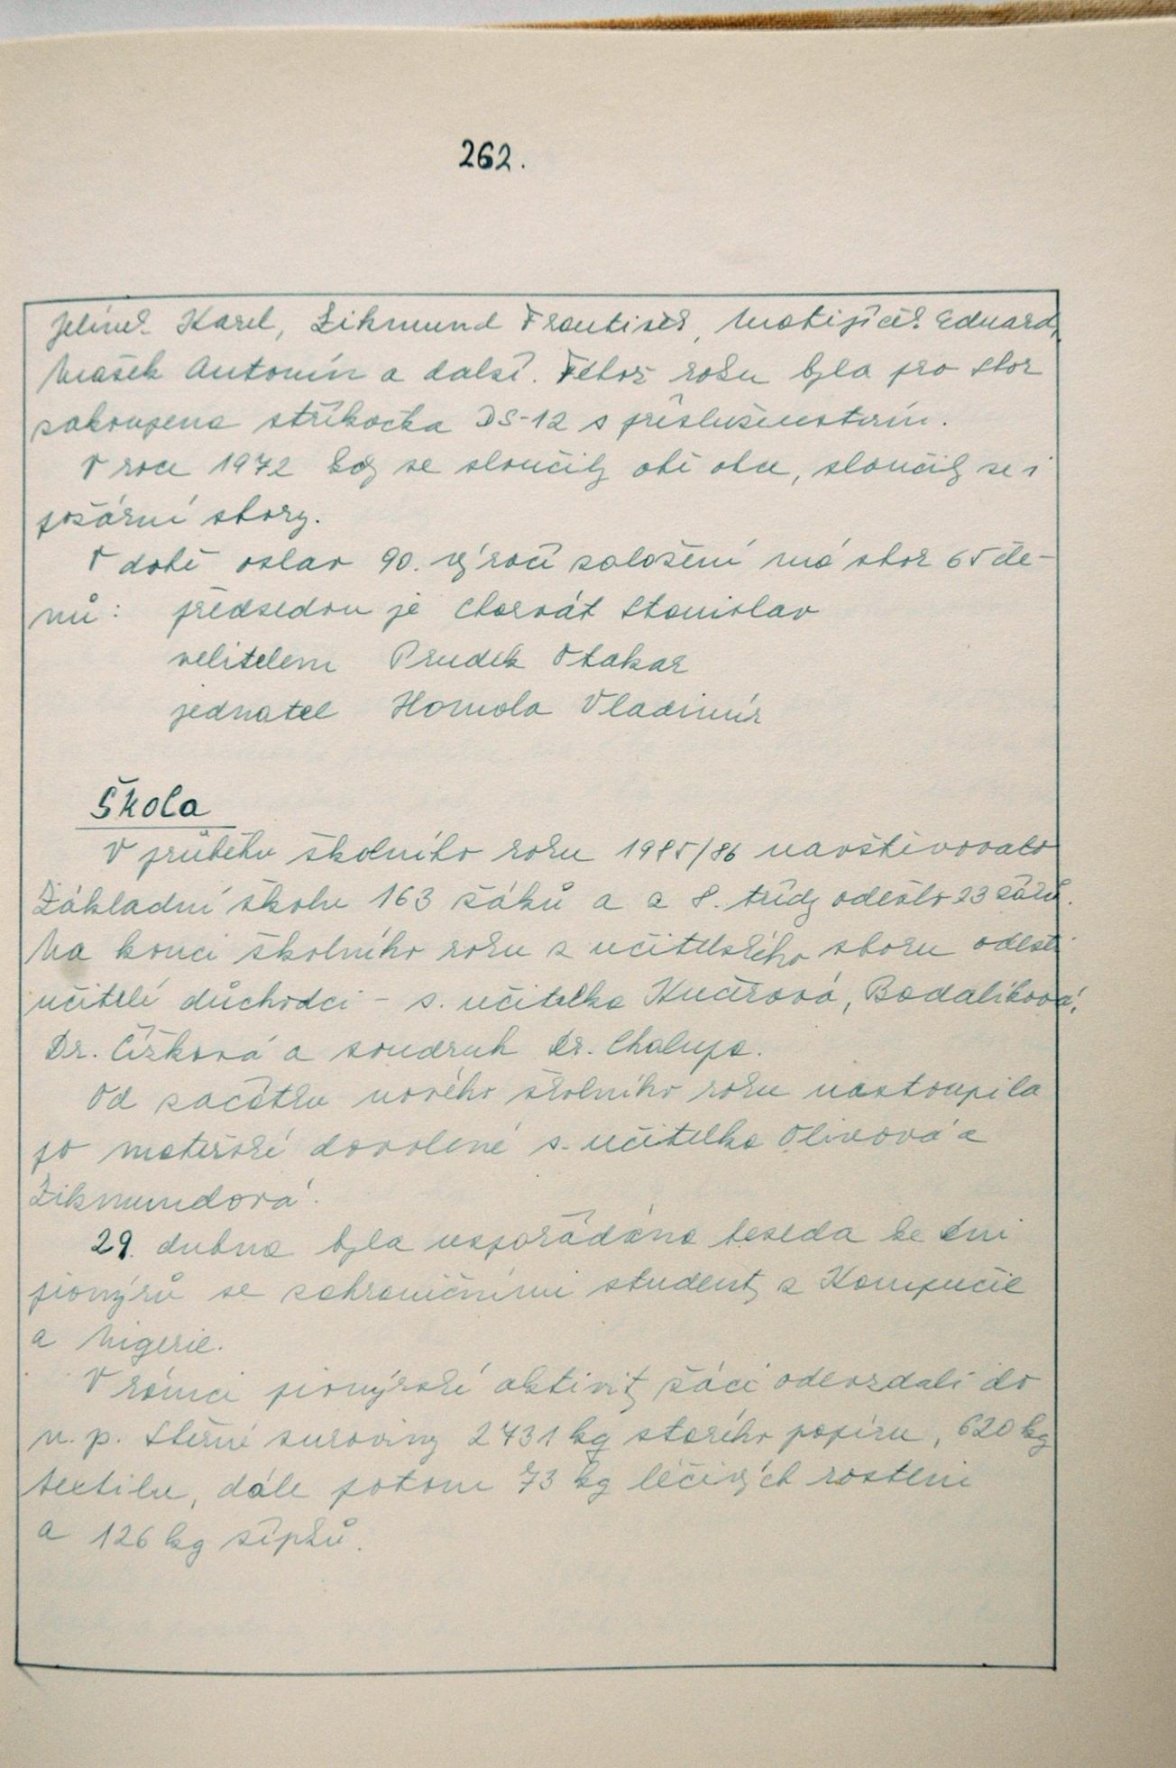 262.
Jelínek Karel, Zikmund František, Matijíček Eduard,
Mašek Antonín a další. Téhož roku byla pro sbor
zakoupena stříkačka DS-12 s příslušenstvím.
V roce 1972 kdy se sloučily obě obce, sloučily se i
požární sbory.
V době oslav 90. výročí založení má sbor 65 čle-
nů: předsedou je Charvát Stanislav
velitelem Prudek Otakar
jednatel Homola Vladimír
Škola
V průběhu školního roku 1985/86 navštěvovalo
Základní školu 163 žáků a z 8. třídy odešlo 23 žáků.
Na konci školního roku z učitelského sboru odešli
učitelé důchodci - s. učitelka Kučírová, Badalíková,
Dr. Čížková a soudruh Dr. Chalupa.
Od začátku nového školního roku nastoupila
po mateřské dovolené s. učitelka Olivová a
Zikmundová.
29. dubna byla uspořádána beseda ke dni
pionýrů se zahraničními studenty z Kampučie
a Nigerie.
V rámci pionýrské aktivity žáci odevzdali do
n. p. Sběrné suroviny 2431 kg starého papíru, 620 kg
textilu, dále potom 73 kg léčivých rostlin
a 126 kg šípků.